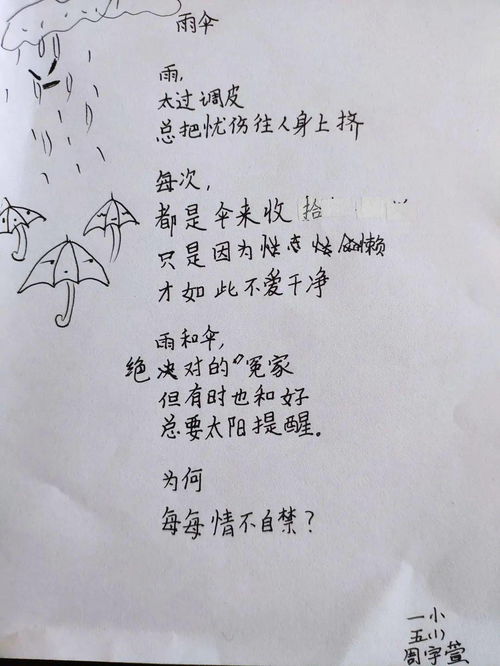 雨伞
雨,
太过调皮
总把忧伤往人身上挤
每次,
都是伞来收拾
只是因为性 懒
才如此不爱干净
雨和伞,
绝对的“冤家
但有时也和好
总要太阳提醒。
为何
每每情不自禁?
一小
五(1)
周宇萱